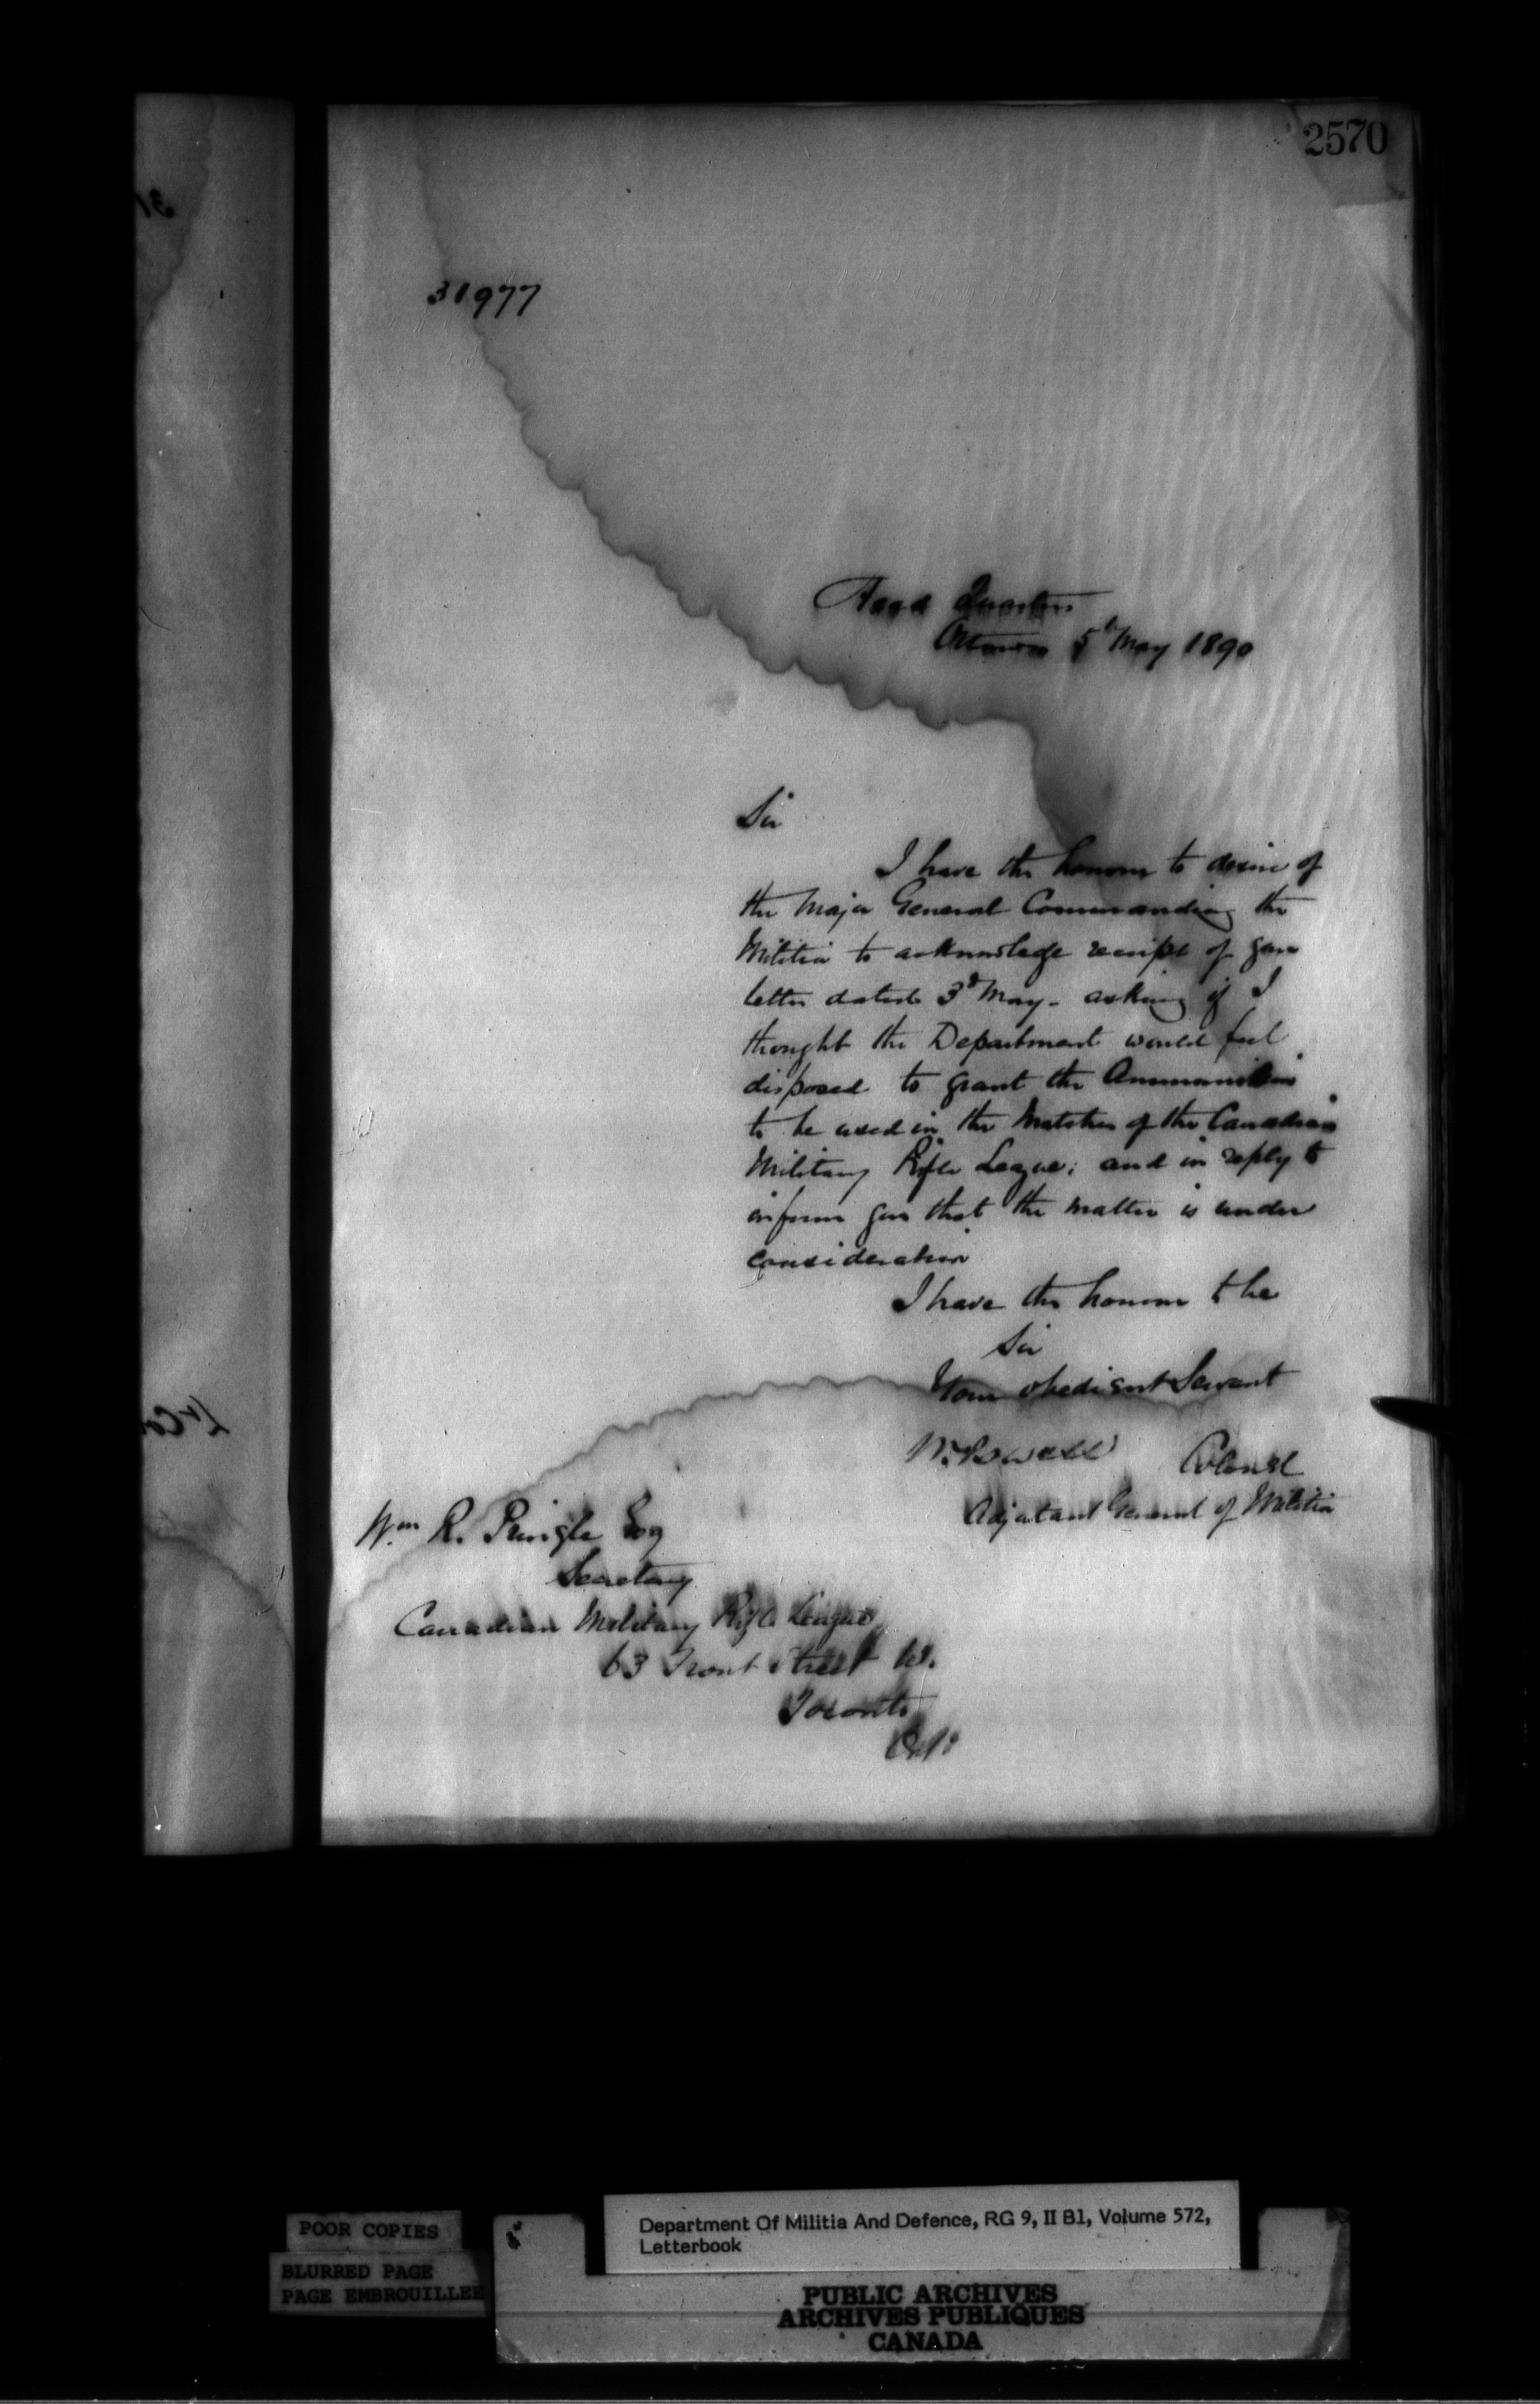 2570
31977
Head Quarters
Ottawa 5th May 1890
Sir
I have the honour to desire of
the Major General Commanding the
Militia to acknowledge receipt of your
letter dated 3d May - asking if I
thought the Department would feel
disposed to grant the Ammunition
to be used in the Matches of the Canadian
Military Rifle League; and in reply to
inform you that the matter is under
consideration
I have the honour to be
Sir
Your obedient Servant
W. Powell Colonel
Adjutant General of Militia
Wm R. Pringle Esq
Secretary
Canadian Military Rifle League
63 Front Street W.
Toronto
Ont:
POOR COPIES
BLURRED PAGE
PAGE EMBROUILLEE
Department Of Militia And Defence, RG 9, II B1, Volume 572,
Letterbook
PUBLIC ARCHIVES
ARCHIVES PUBLIQUES
CANADA